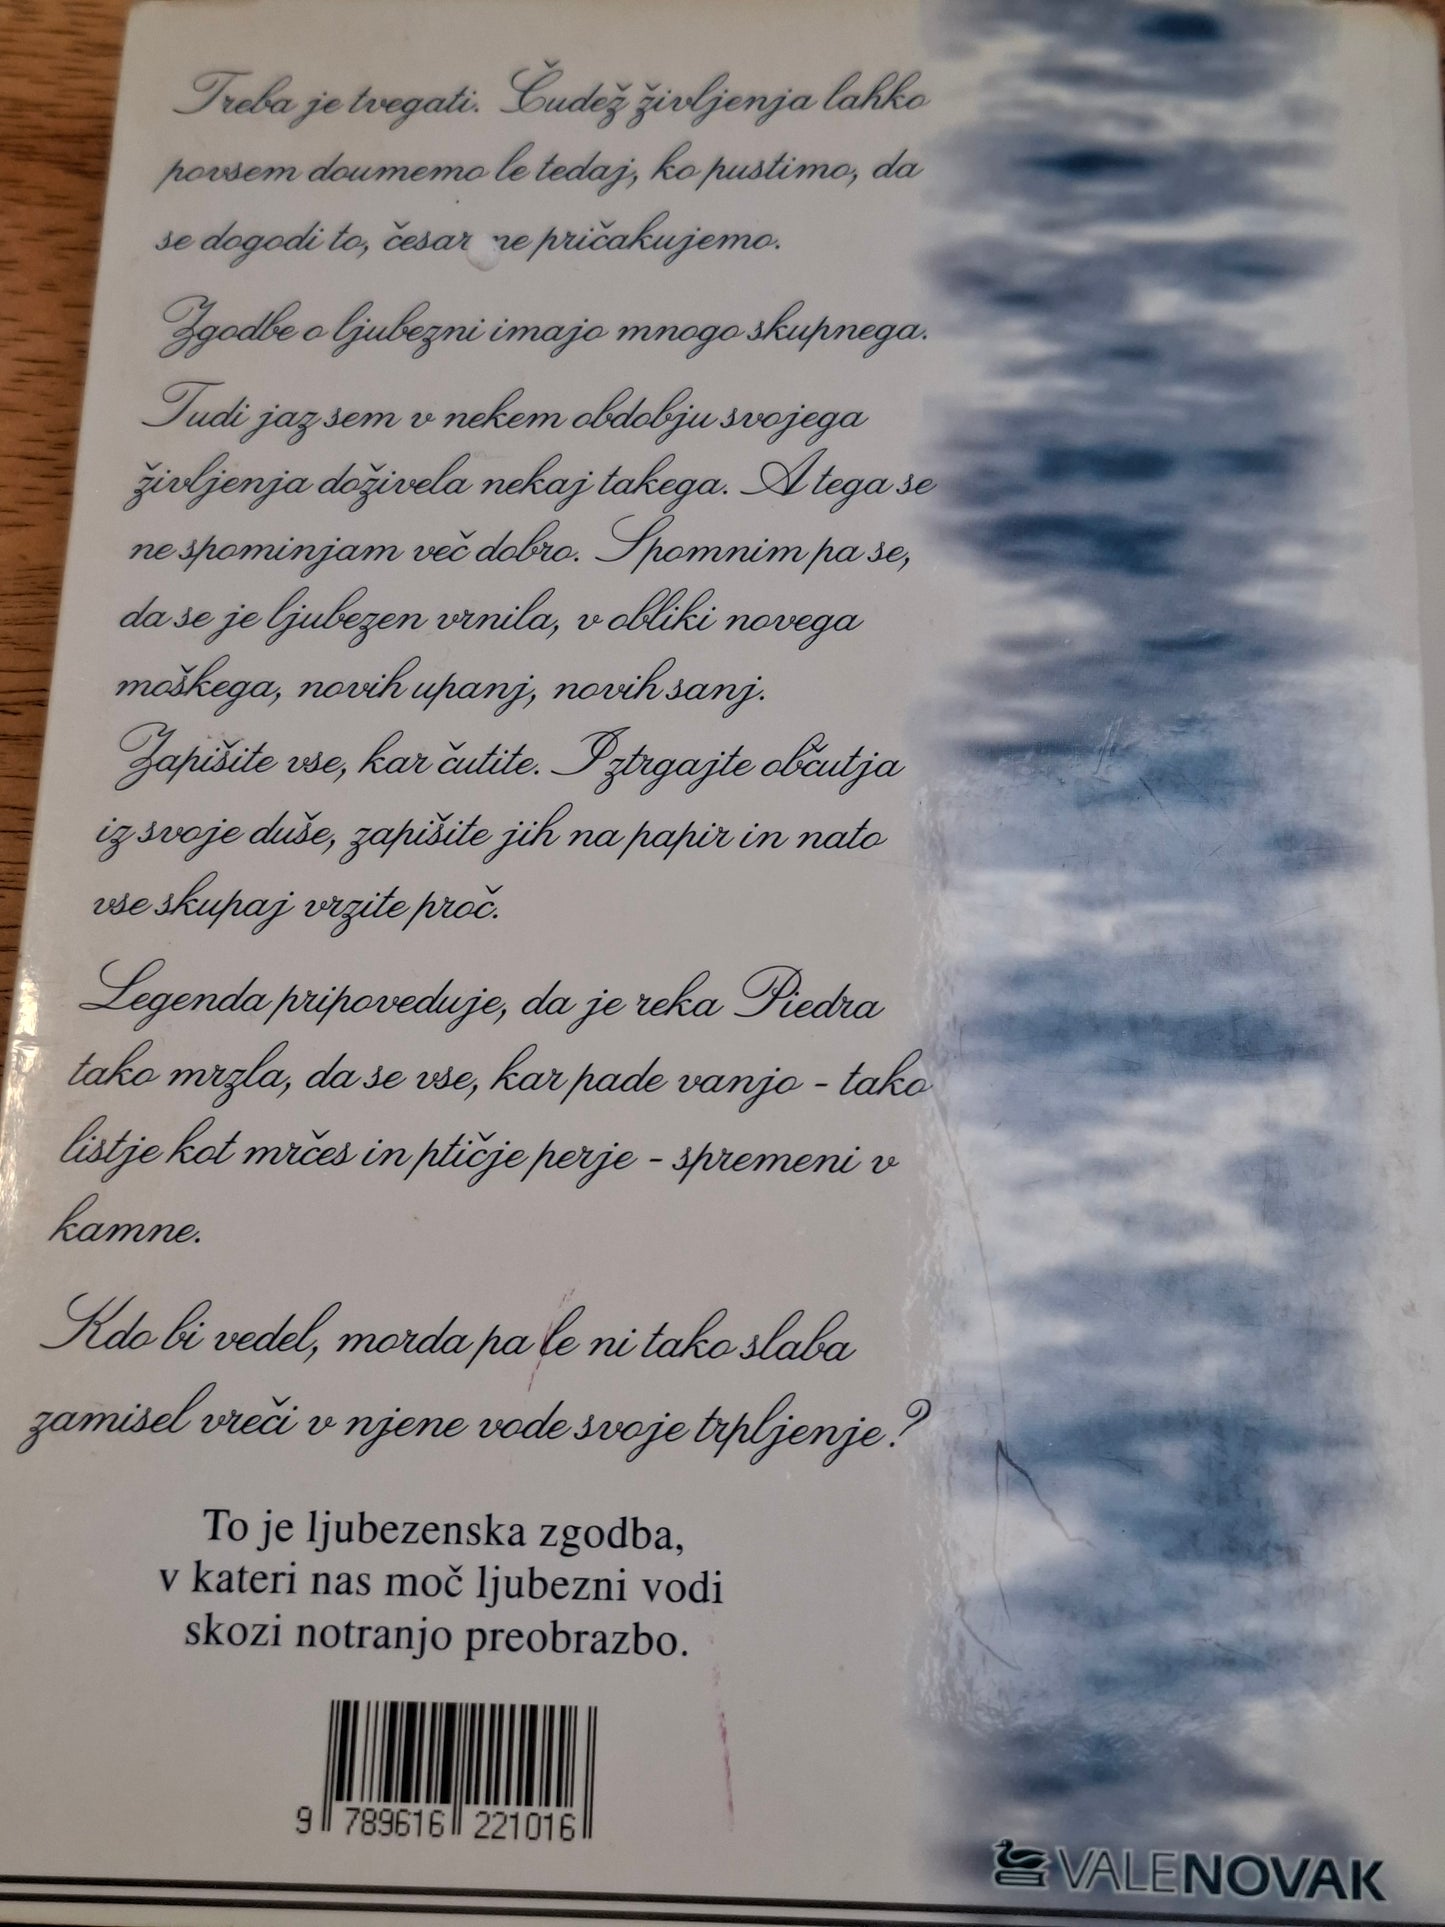 Treba je tvegati. Čudež življenja lahko
povsem doumemo le tedaj, ko pustimo, da
se dogodi to, česar ne pričakujemo.
Zgodbe o ljubezni imajo mnogo skupnega.
Tudi jaz sem v nekem obdobju svojega
življenja doživela nekaj takega. A tega se
ne spominjam več dobro. Spomnim pa se,
da se je ljubezen vrnila, v obliki novega
moškega, novih upanj, novih sanj.
Zapišite vse, kar čutite. Iztrgajte občutja
iz svoje duše, zapišite jih na papir in nato
vse skupaj vrzite proč.
Legenda pripoveduje, da je reka Piedra
tako mrzla, da se vse, kar pade vanjo - tako
listje kot mrčes in ptičje perje - spremeni v
kamne.
Kdo bi vedel, morda pa le ni tako slaba
zamisel vreči v njene vode svoje trpljenje?
To je ljubezenska zgodba,
v kateri nas moč ljubezni vodi
skozi notranjo preobrazbo.
9 789616 221016
VALENOVAK